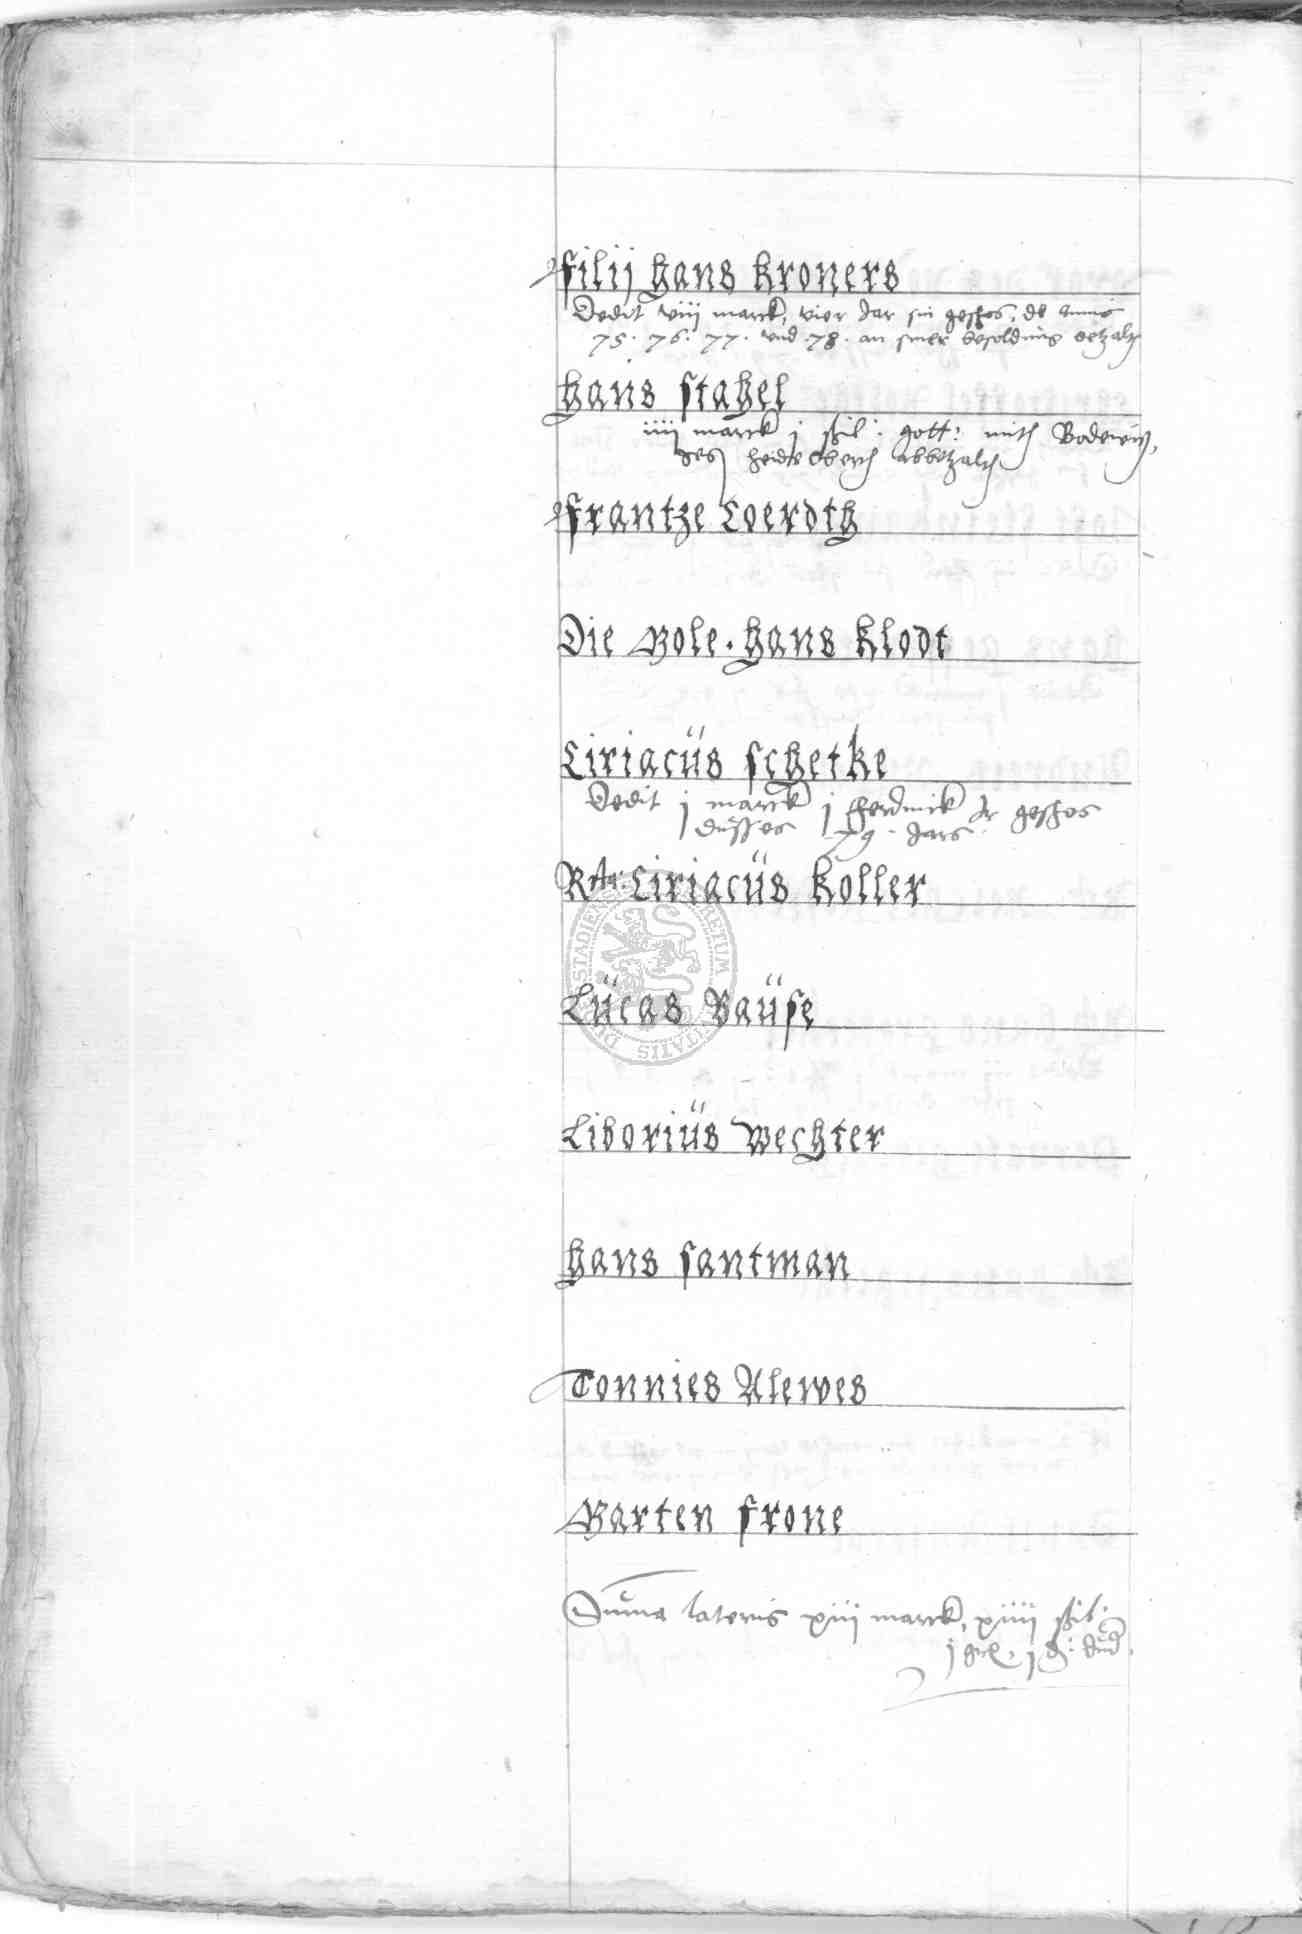 Filij Hans Kroners
Dedit viij marck, vier Jar sin geschos, de annis
75. 76. 77. vnd .78. an siner besoldung betzalt
Hans Stahel
iiij marck j schil: gott: mith Bodewin,
des
Frantze Coerdth
Die Bole. Hans Klodt
Ciriacüs Schetke
Dedit j marck j ferdinck sin geschos
düsses 79. Jars
Ciriacüs Koller
Lücas Baüse
Liboriüs Wechter
Hans Santman
Tonnies Alewes
Barten Frone
Summa lateris xiij marck, xiiij schil: